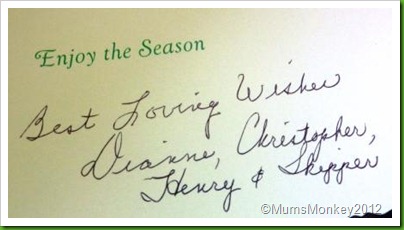 Enjoy the Season
Best Loving Wishes
Dianne, Christopher,
Henry & Skipper
©MumsMonkey2012